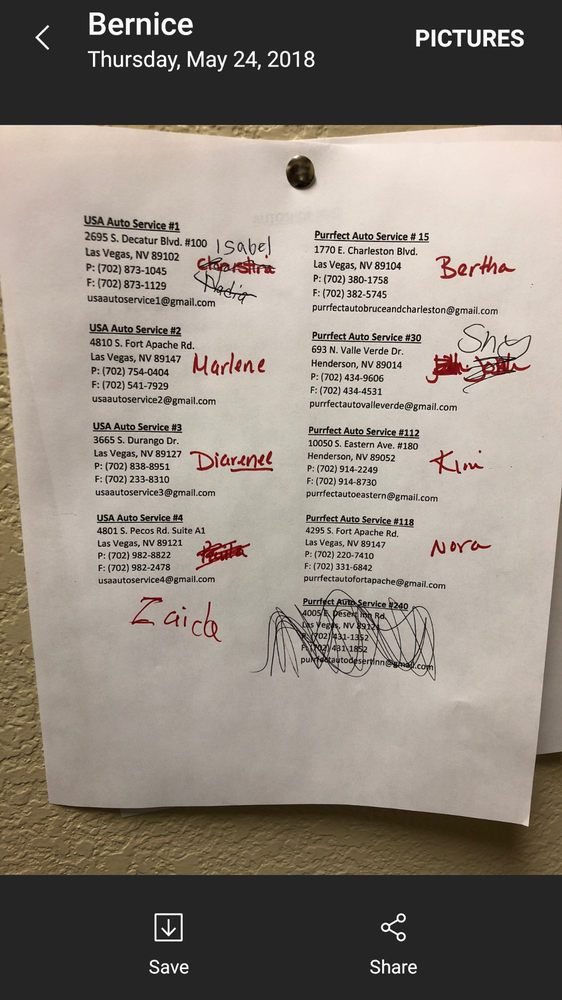 Bernice
Thursday, May 24, 2018
PICTURES
USA Auto Service #1
2695 S. Decatur Blvd. #100
Las Vegas, NV 89102
P: (702) 873-1045
F: (702) 873-1129
usaautoservice1@gmail.com
Isabel
Nadia
USA Auto Service #2
4810 S. Fort Apache Rd.
Las Vegas, NV 89147
P: (702) 754-0404
F: (702) 541-7929
usaautoservice2@gmail.com
Marlene
USA Auto Service #3
3665 S. Durango Dr.
Las Vegas, NV 89127
P: (702) 838-8951
F: (702) 233-8310
usaautoservice3@gmail.com
Diarenee
USA Auto Service #4
4801 S. Pecos Rd. Suite A1
Las Vegas, NV 89121
P: (702) 982-8822
F: (702) 982-2478
usaautoservice4@gmail.com
Zaida
Purrfect Auto Service # 15
1770 E. Charleston Blvd.
Las Vegas, NV 89104
P: (702) 380-1758
F: (702) 382-5745
purrfectautobruceandcharleston@gmail.com
Bertha
Purrfect Auto Service #30
693 N. Valle Verde Dr.
Henderson, NV 89014
P: (702) 434-9606
F: (702) 434-4531
purrfectautovalleverde@gmail.com
Shay
Purrfect Auto Service #112
10050 S. Eastern Ave. #180
Henderson, NV 89052
P: (702) 914-2249
F: (702) 914-8730
purrfectautoeastern@gmail.com
Kimi
Purrfect Auto Service #118
4295 S. Fort Apache Rd.
Las Vegas, NV 89147
P: (702) 220-7410
F: (702) 331-6842
purrfectautofortapache@gmail.com
Nora
Purrfect Auto Service #240
4005 E. Desert Inn Rd.
Las Vegas, NV 89121
P: (702) 431-1352
F: (702) 431-1852
purrfectautodesertinn@gmail.com
Save
Share